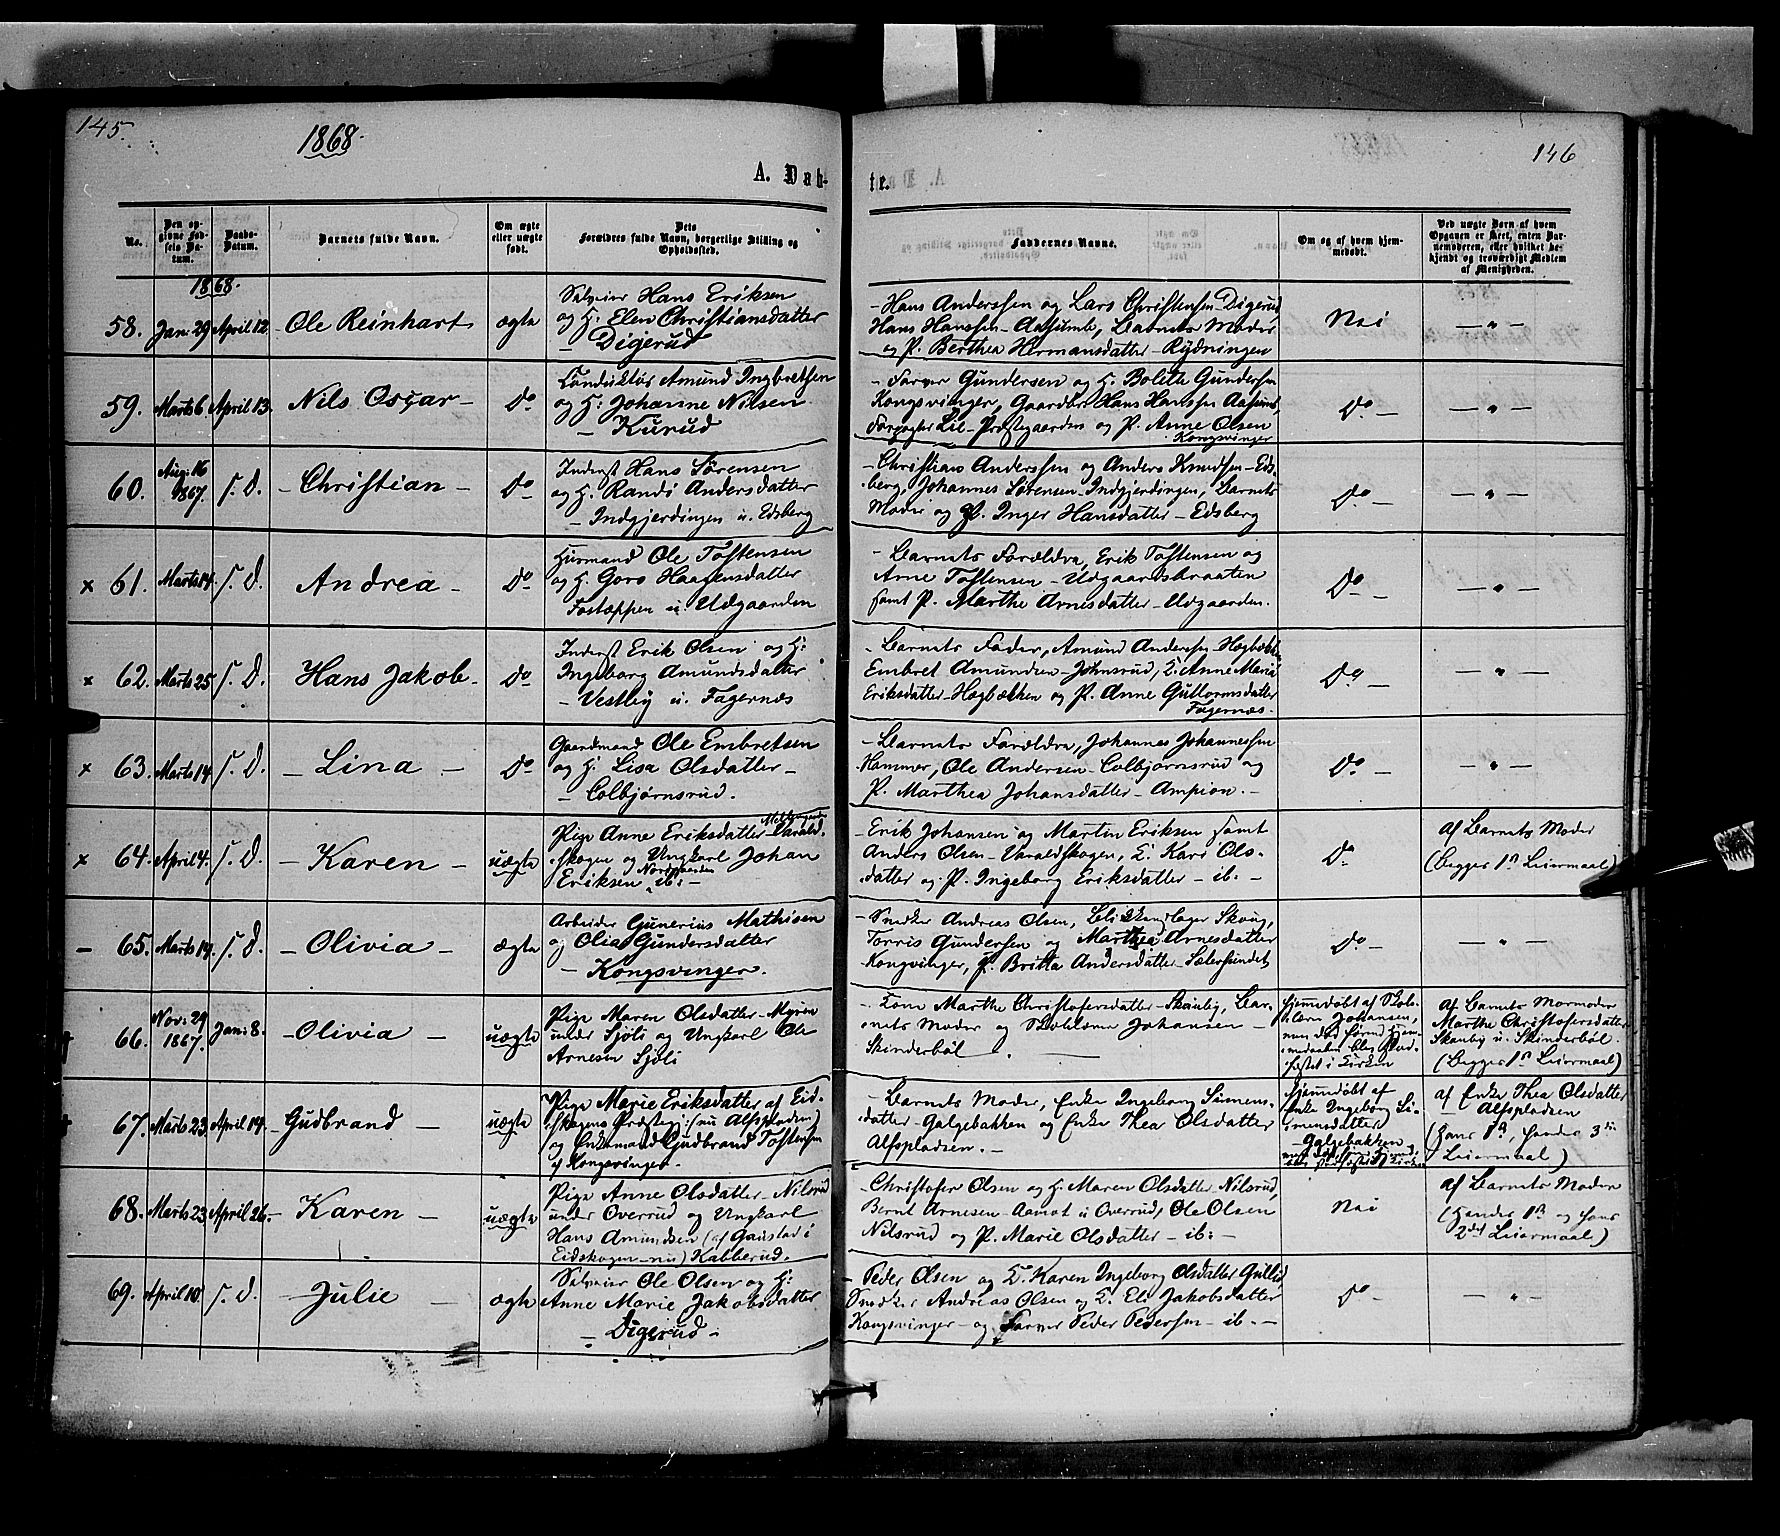 145.
1868.
A. Dab-
No.
Den op-
givne Fød-
sels Da-
tum.
Daabs-
Datum.
Barnets fulde Navn.
Om ægte
eller uægte
født.
Dets
Forældres fulde Navn, borgerlige Stilling og
Opholdssted.
1868.
58. Jan: 29 April 12 Ole Reinhart ægte
Selveier Hans Eriksen
og H. Elen Christiansdatter
— Digerud
59. Marts 6 April 13. Nils Oscar — Do
Amund Ingbretsen
og H: Johanne Nilsen
— Kurud
60. Aug: 16 1867. S. D. — Christian — Do
Inderst Hans Sørensen
og H. Randi Andersdatter
— Indgjerdingen u. Edsberg
× 61. Marts 14. S. D. Andrea — Do
Husmand Ole Tostensen
og H. Goro Haagensdatter
Fostæppen u. Udgaarden
× 62. Marts 25 S. D. Hans Jakob — Do
Inderst Erik Olsen og H:
Ingeborg Amundsdatter
— Vestby u. Fagernæs
× 63. Marts 14 S. D. — Lina — Do
Gaardmand Ole Embretsen
og H. Lisa Olsdatter —
— Colbjørnsrud.
× 64. April 4. S. D. — Karen — uægte
Pige Anne Eriksdatter Varald-
skogen og Ungkarl Johan
Eriksen Nordgaarden ib: —
— 65. Marts 19. S. D. — Olivia — ægte
Arbeider Gunerius Mathisen
og Olia Gundersdatter
— Kongsvinger.
66. Nov: 29 1867. Jan: 8. — Olivia — uægte
Pige Maren Olsdatter — Myren
under Sjøli og Ungkarl Ole
Arnesen Sjøli
67. Marts 23 April 19. Gudbrand — uægte
Pige Marie Eriksdatter af Eid-
skogens Præstegj: (nu Alfspladsen)
og Enkemand Gudbrand Tostensen
af Kongsvinger.
68. Marts 23 April 26. — Karen — uægte
Pige Anne Olsdatter — Nilsrud
under Overrud og Ungkarl
Hans Amundsen (af Gaustad i
Eidskogen — nu) Kabberud.
69. April 10. S. D. — Julie — ægte
Selveier Ole Olsen og H:
Anne Marie Jakobsdatter
— Digerud —
146
te.
Faddernes Navne.
Om og af hvem hjem-
medøbt.
Ved uægte Børn af hvem
Opgaven er skeet, enten Bar-
nemoderen, eller hvilket be-
kjendt og troværdigt Medlem
af Menigheden.
— Hans Anderssen og Lars Christensen Digerud
Hans Hanssen — Aasumb, Barnets Moder
og P. Berthea Hermansdatter — Rydningen
Nei — " —
— Farver Gundersen og H. Bolette Gundersen
Kongsvinger, Gaardbr. Hans Hanssen Aasumb,
Forpagter Lie — Præstegaarden og P. Anne Olsen
Kongsvinger
Do — — " —
— Christian Anderssen og Anders Knudsen — Eds-
berg, Johannes Sørensen — Indgjerdingen, Barnets
Moder og P. Inger Hansdatter — Edsberg
Do — — " —
— Barnets Forældre, Erik Tostensen og
Arne Tostensen — Udgaardsbraaten
samt P. Marthe Arnesdatter — Udgaarden.
Do — — " —
— Barnets Fader, Amund Andersen — Hægbækken
Embret Amundsen — Johnsrud, E. Anne Maria
Eriksdatter — Hægbækken og P. Anne Guttormsdatter
Fagernæs.
Do — — " —
— Barnets Forældre, Johannes Johannessen
Hammer, Ole Andersen — Colbjørnsrud og
P. Marthea Johansdatter — Ampion. —
Do — — " —
— Erik Johansen og Martin Eriksen samt
Anders Olsen — Varaldskogen, E. Kari Ols-
datter og P. Ingeborg Eriksdatter — ib: —
Do —
af Barnets Moder
(begges 1ste Leiermaal)
— Snedker Andreas Olsen, Skoug,
Torris Gundersen og Marthea Arnesdatter
Kongsvinger, P. Britta Andersdatter — Sætersundet
Do — — " —
— Marthe Christofersdatter — Skanby, Bar-
nets Moder og Johansen —
Skinderbøl —
hjemmedøbt af Skole-
Johansen,
i Kirken
af Barnets Mormoder
Marthe Christofersdatter
Skanby u. Skinderbøl.
(begges 1ste Leiermaal)
— Barnets Moder, Enke Ingeborg Simens-
datter — Galgebakken og Enke Thea Olsdatter
Alfspladsen. —
hjemmedøbt af
Enke Ingeborg Si-
mensdatter
— Galgebakken
af Enke Thea Olsdatter
Alfspladsen
(hans 1ste, hendes 3die
Leiermaal)
— Christofer Olsen og H. Maren Olsdatter — Nilsrud,
Bernt Arnesen — Aamot u. Overrud, Ole Olsen
Nilsrud og P. Marie Olsdatter — ib: —
Nei
af Barnets Moder
(hendes 1ste og hans
2det Leiermaal)
— Peder Olsen og E. Karen Ingeborg Olsdatter Gullid
Snedker Andreas Olsen og E. Eli Jakobsdatter
Kongsvinger — og Farver Peder Pedersen — ib. —
Do — — " —